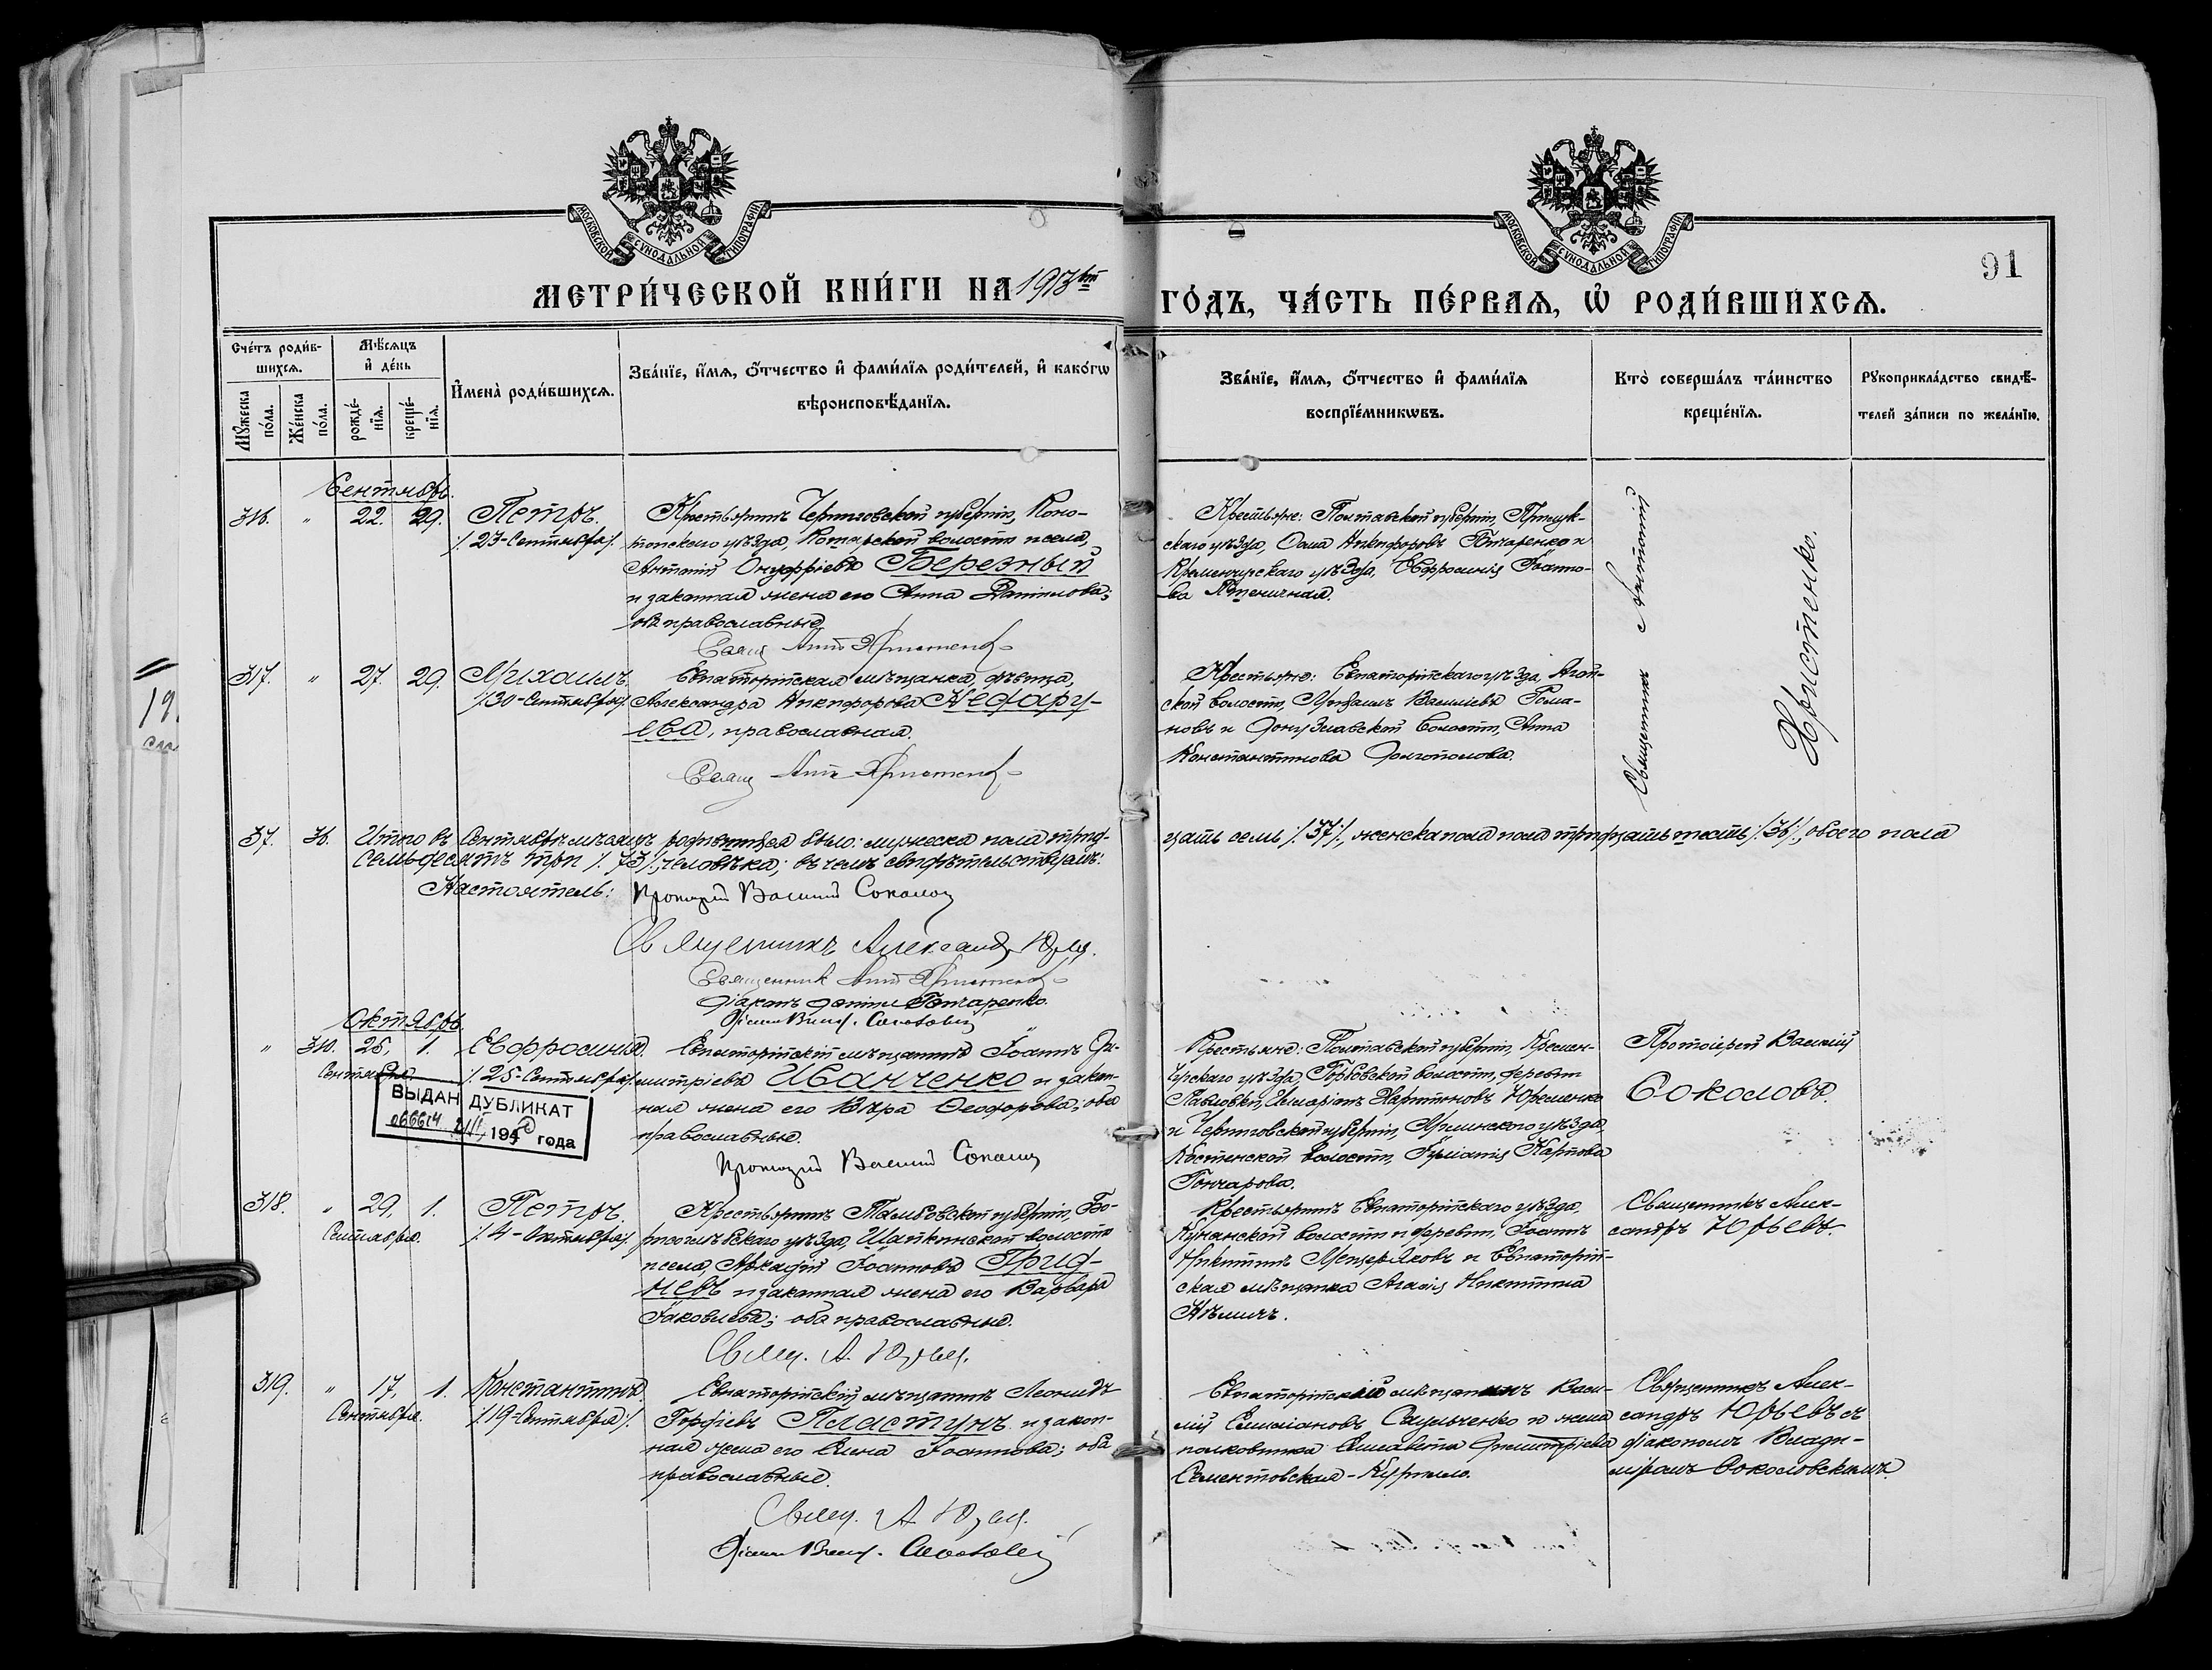 МОСКОВСКОЙ СУНОДАЛЬНОЙ ТИПОГРАФІИ
МОСКОВСКОЙ СУНОДАЛЬНОЙ ТИПОГРАФІИ
91
МЕТРИ́ЧЕСКОЙ КНИ́ГИ НА 1913й
ГО́ДЪ, ЧА́СТЬ ПЕ́РВАѦ, Ѡ҆ РОДИ́ВШИХСѦ.
Сче́тъ роди́в-
шихсѧ.
Мꙋ́жеска по́ла.
Же́нска по́ла.
Мѣ́сѧцъ и҆ де́нь
рожде́-
нїѧ.
креще́-
нїѧ.
И҆мена̀ роди́вшихсѧ.
Зва́нїе, и҆́мѧ, ѻ҆́тчество и҆ фами́лїѧ роди́телей, и҆ како́гѡ
вѣроисповѣ́данїѧ.
Зва́нїе, и҆́мѧ, ѻ҆́тчество и҆ фами́лїѧ
воспрїе́мникѡвъ.
Кто̀ соверша́лъ та́инство
креще́нїѧ.
Рꙋкоприкла́дство свидѣ́-
телей за́писи по жела́нїю.
Сентябрь.
316. " 22. 29. Петръ.
/. 23-Сентября/.
Крестьянинъ Черниговской губерніи, Коно-
топскаго уѣзда, волости и села,
Антоній Онуфріевъ Березный
и законная жена его Анна Даніилова;
оба православные.
Свящ. Ант. Христенко
Крестьяне: Полтавской губерніи, Прилук-
скаго уѣзда, Никифоровъ Гончаренко и
Кременчугскаго уѣзда, Евфросинія Іоанно-
ва Пшеничная.
Священникъ Антоній
Христенко.
317. " 27. 29. Михаилъ.
/.30-Сентября/.
Евпаторійская мѣщанка, дѣвица,
Александра Никифорова Нефару-
ева, православная.
Свящ. Ант. Христенко
Крестьяне: Евпаторійскаго уѣзда,
ской волости, Михаилъ Василіевъ Рома-
новъ и Донузлавской волости, Анна
Константинова Долгополова.
37. 36. Итого въ Сентябрѣ мѣсяцѣ родившихся было: мужеска пола трид-
цать семь /.37./, женска пола пола тридцать шесть /.36/., обоего пола
семьдесятъ три /.73/. человѣка; въ чемъ свидѣтельствуемъ:
Настоятель: Протоіерей Василій Соколов
Священникъ Александръ Юрьев.
Священник Ант. Христенко
Діаконъ Даніилъ Гончаренко.
Октябрь.
" 310. 25, 1. Евфросинія.
Сентября. /.25-Сентября/.
Евпаторійскій мѣщанинъ Іоаннъ Ди-
митріевъ Иванченко и закон-
ная жена его Вѣра Ѳеодорова; оба
православные.
Протоіерей Василий Соколов
ВЫДАН ДУБЛИКАТ
195 года
Крестьяне: Полтавской губерніи, Кремен-
чугскаго уѣзда, волости, деревни
Павловки, Иларіонъ Харитоновъ Юременко
и Черниговской губерніи, уѣзда,
волости, Іуліанія Карпова
Гончарова.
Протоіерей Василій
Соколовъ.
318. " 29, 1. Петръ.
Сентября. /.4-Октября/.
Крестьянинъ Тамбовской губерніи, Бо-
рисоглѣбскаго уѣзда, Шапкинской волости
и села, Аркадій Іоанновъ Грид-
невъ и законная жена его Варвара
Іаковлева; оба православные.
Свящ. А. Юрьев.
Крестьянинъ Евпаторійскаго уѣзда,
волости и деревни, Іоаннъ
Никитинъ Мещеряковъ и Евпаторій-
ская мѣщанка Агаѳія Никитина
Священникъ Алек-
сандръ Юрьевъ.
319. " 17, 1. Константинъ.
Сентября. /.19-Сентября/.
Евпаторійскій мѣщанинъ Леонидъ
Гордіевъ Пластунъ и закон-
ная жена его Елена Іоаннова; оба
православные.
Свящ. А. Юрьев.
Евпаторійскій мѣщанинъ Васи-
лій Емиліановъ Самульченко и жена
полковника Елисавета Димитріева
Сементовская-Курило.
Священникъ Алек-
сандръ Юрьевъ съ
діакономъ Влади-
міромъ Соколовскимъ.